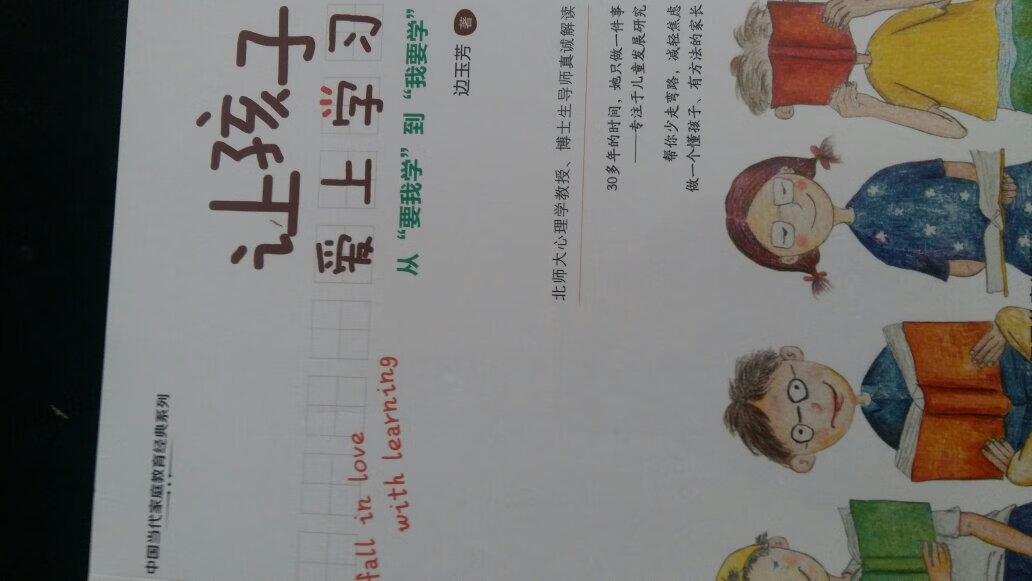 中国当代家庭教育经典系列
让孩子
爱上学习
fall in love
with learning
从“要我学”到“我要学”
边玉芳 著
北师大心理学教授、博士生导师真诚解读
30多年的时间，她只做一件事
——专注于儿童发展研究
帮你少走弯路，减轻焦虑
做一个懂孩子、有方法的家长